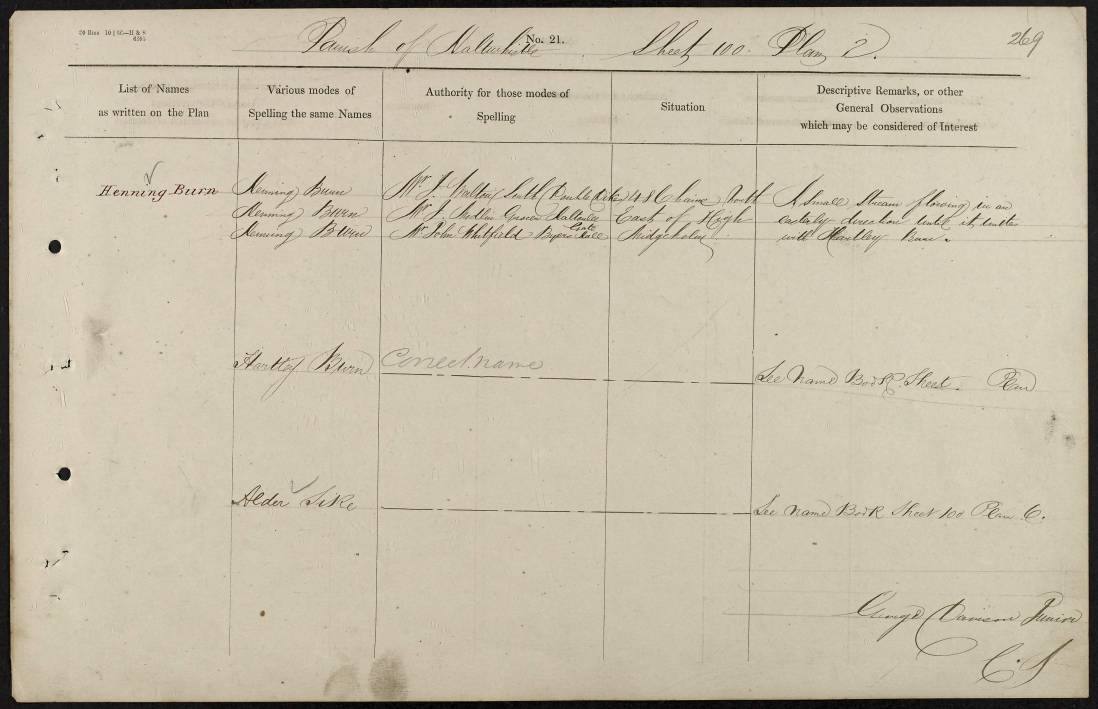 No. 21.
269
Parish of Haltwhistle Sheet 100 Plan 2.
List of Names
as written on the Plan
Various modes of
Spelling the same Names
Authority for those modes of
Spelling
Situation
Descriptive Remarks, or other
General Observations
which may be considered of Interest
Henning Burn
Henning Burn
Henning Burn
Henning Burn
Mr. J. Walton South Double Dikes
Mr. J. Grocer Haltwhistle
Mr John Whitfield Byers Hall
Gate
48 Chains North
East of High
Midgeholm
A small Stream flowing in an
easterly direction until it unites
with Hartley Burn.
Hartley Burn
Correct name
See Name Book Sheet. Plan
Alder Sike
See Name Book Sheet 100 Plan 6.
George Davison Junior
C. S